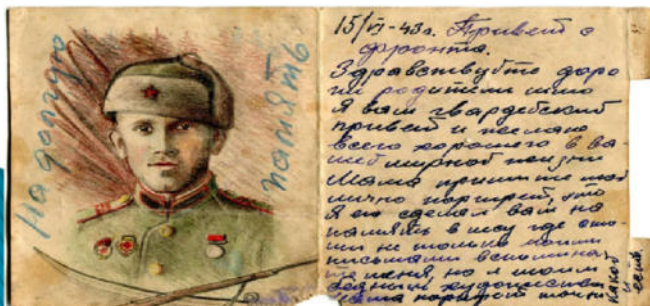 На долгую
память
15/IV-43г. Привет с
фронта.
Здравствуйте доро
ги родители шлю
я вам гвардейский
привет и желаю
всего хорошего в ва
шей мирной жизни
Мама примите мой
лично портрет, что
я его сделал вам на
память в лесу где
ми не только моими
письмами вспоминай
те меня, но и моим
бедным художеством
какой
и
есть.